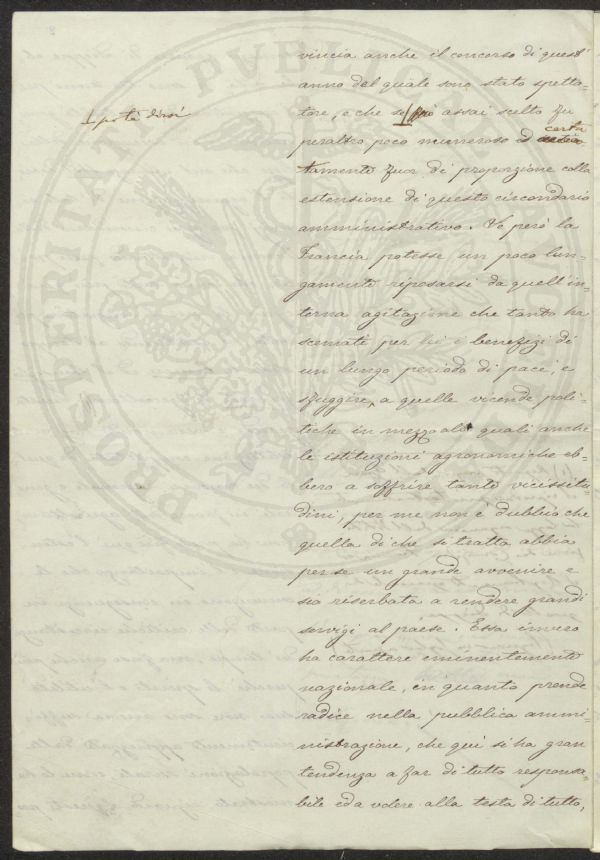 vincia anche il concorso di quest'
anno del quale sono stato spetta=
tore, e che se assai scelto fu
potè dirsi
peraltro poco numeroso ed certa
tamente fuor di proporzione colla
estensione di questo circondario
amministrativo. Se però la
Francia potesse un poco lun=
gamente riposarsi da quell'in=
terna agitazione che tanto ha
scemati per lei i benefizj di
un lungo periodo di pace, e
sfuggire, a quelle vicende poli=
tiche in mezzo alle quali anche
le istituzioni agronomiche eb=
bero a soffrire tante vicissitu=
dini, per me non è dubbio che
quella di che si tratta abbia
per se un grande avvenire e
sia riserbata a rendere grandi
servigi al paese. Essa invero
ha carattere eminentemente
nazionale, in quanto prende
radice nella pubblica ammi=
nistrazione, che quì si ha gran
tendenza a far di tutto responsa=
bile ed a volere alla testa di tutto,
PROSPERITATI PVBLICAE AV